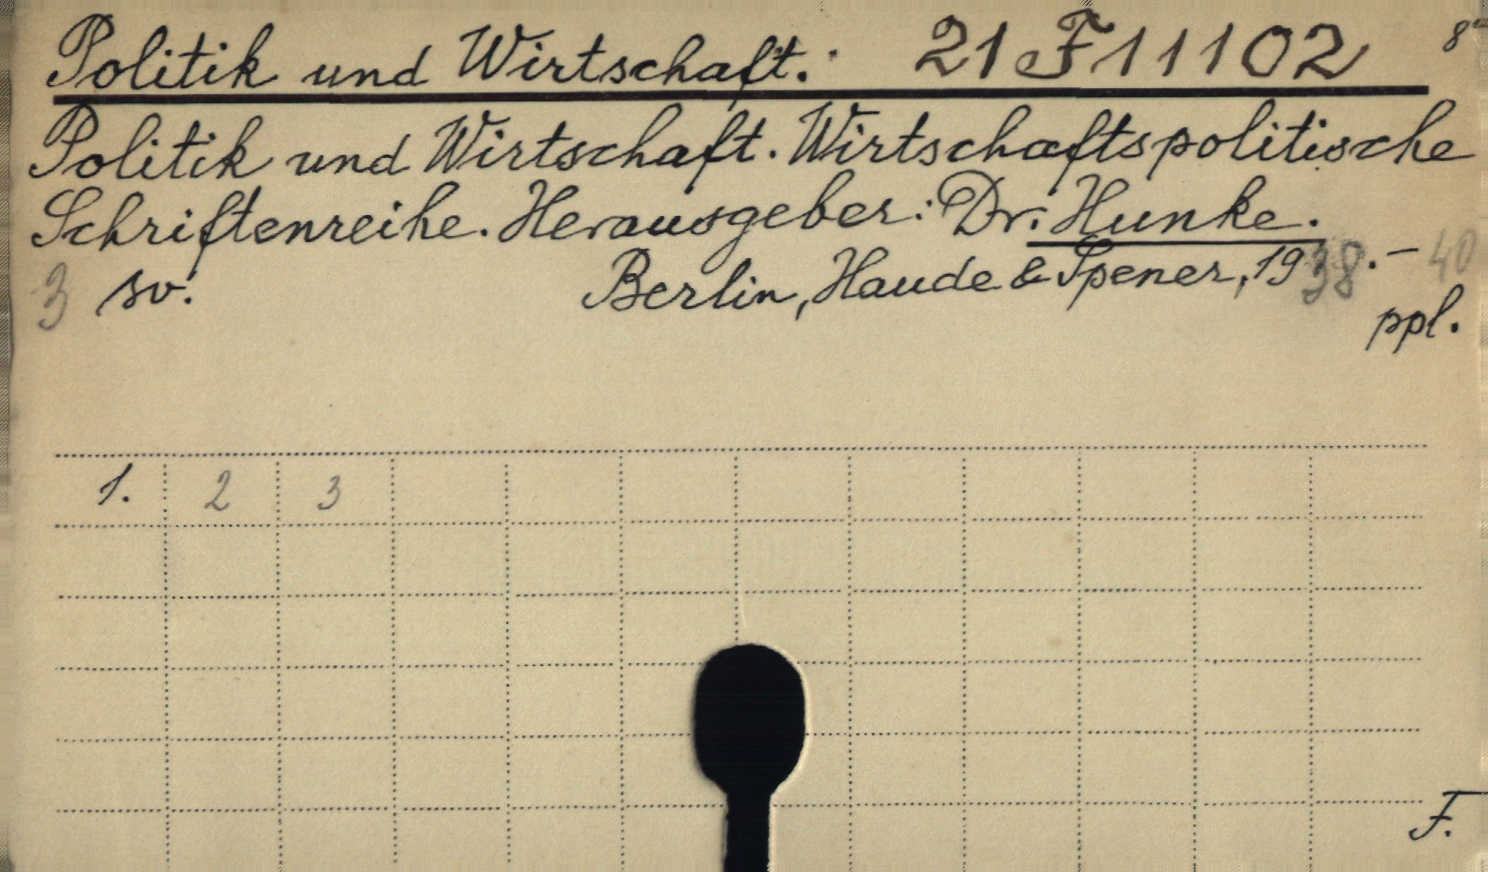 Politik und Wirtschaft. 21 F 11102 8°
Politik und Wirtschaft. Wirtschaftspolitische
Schriftenreihe. Herausgeber: Dr. Hunke.
3 sv. Berlin, Haude & Spener, 1938.–40
ppl.
1. 2 3
F.